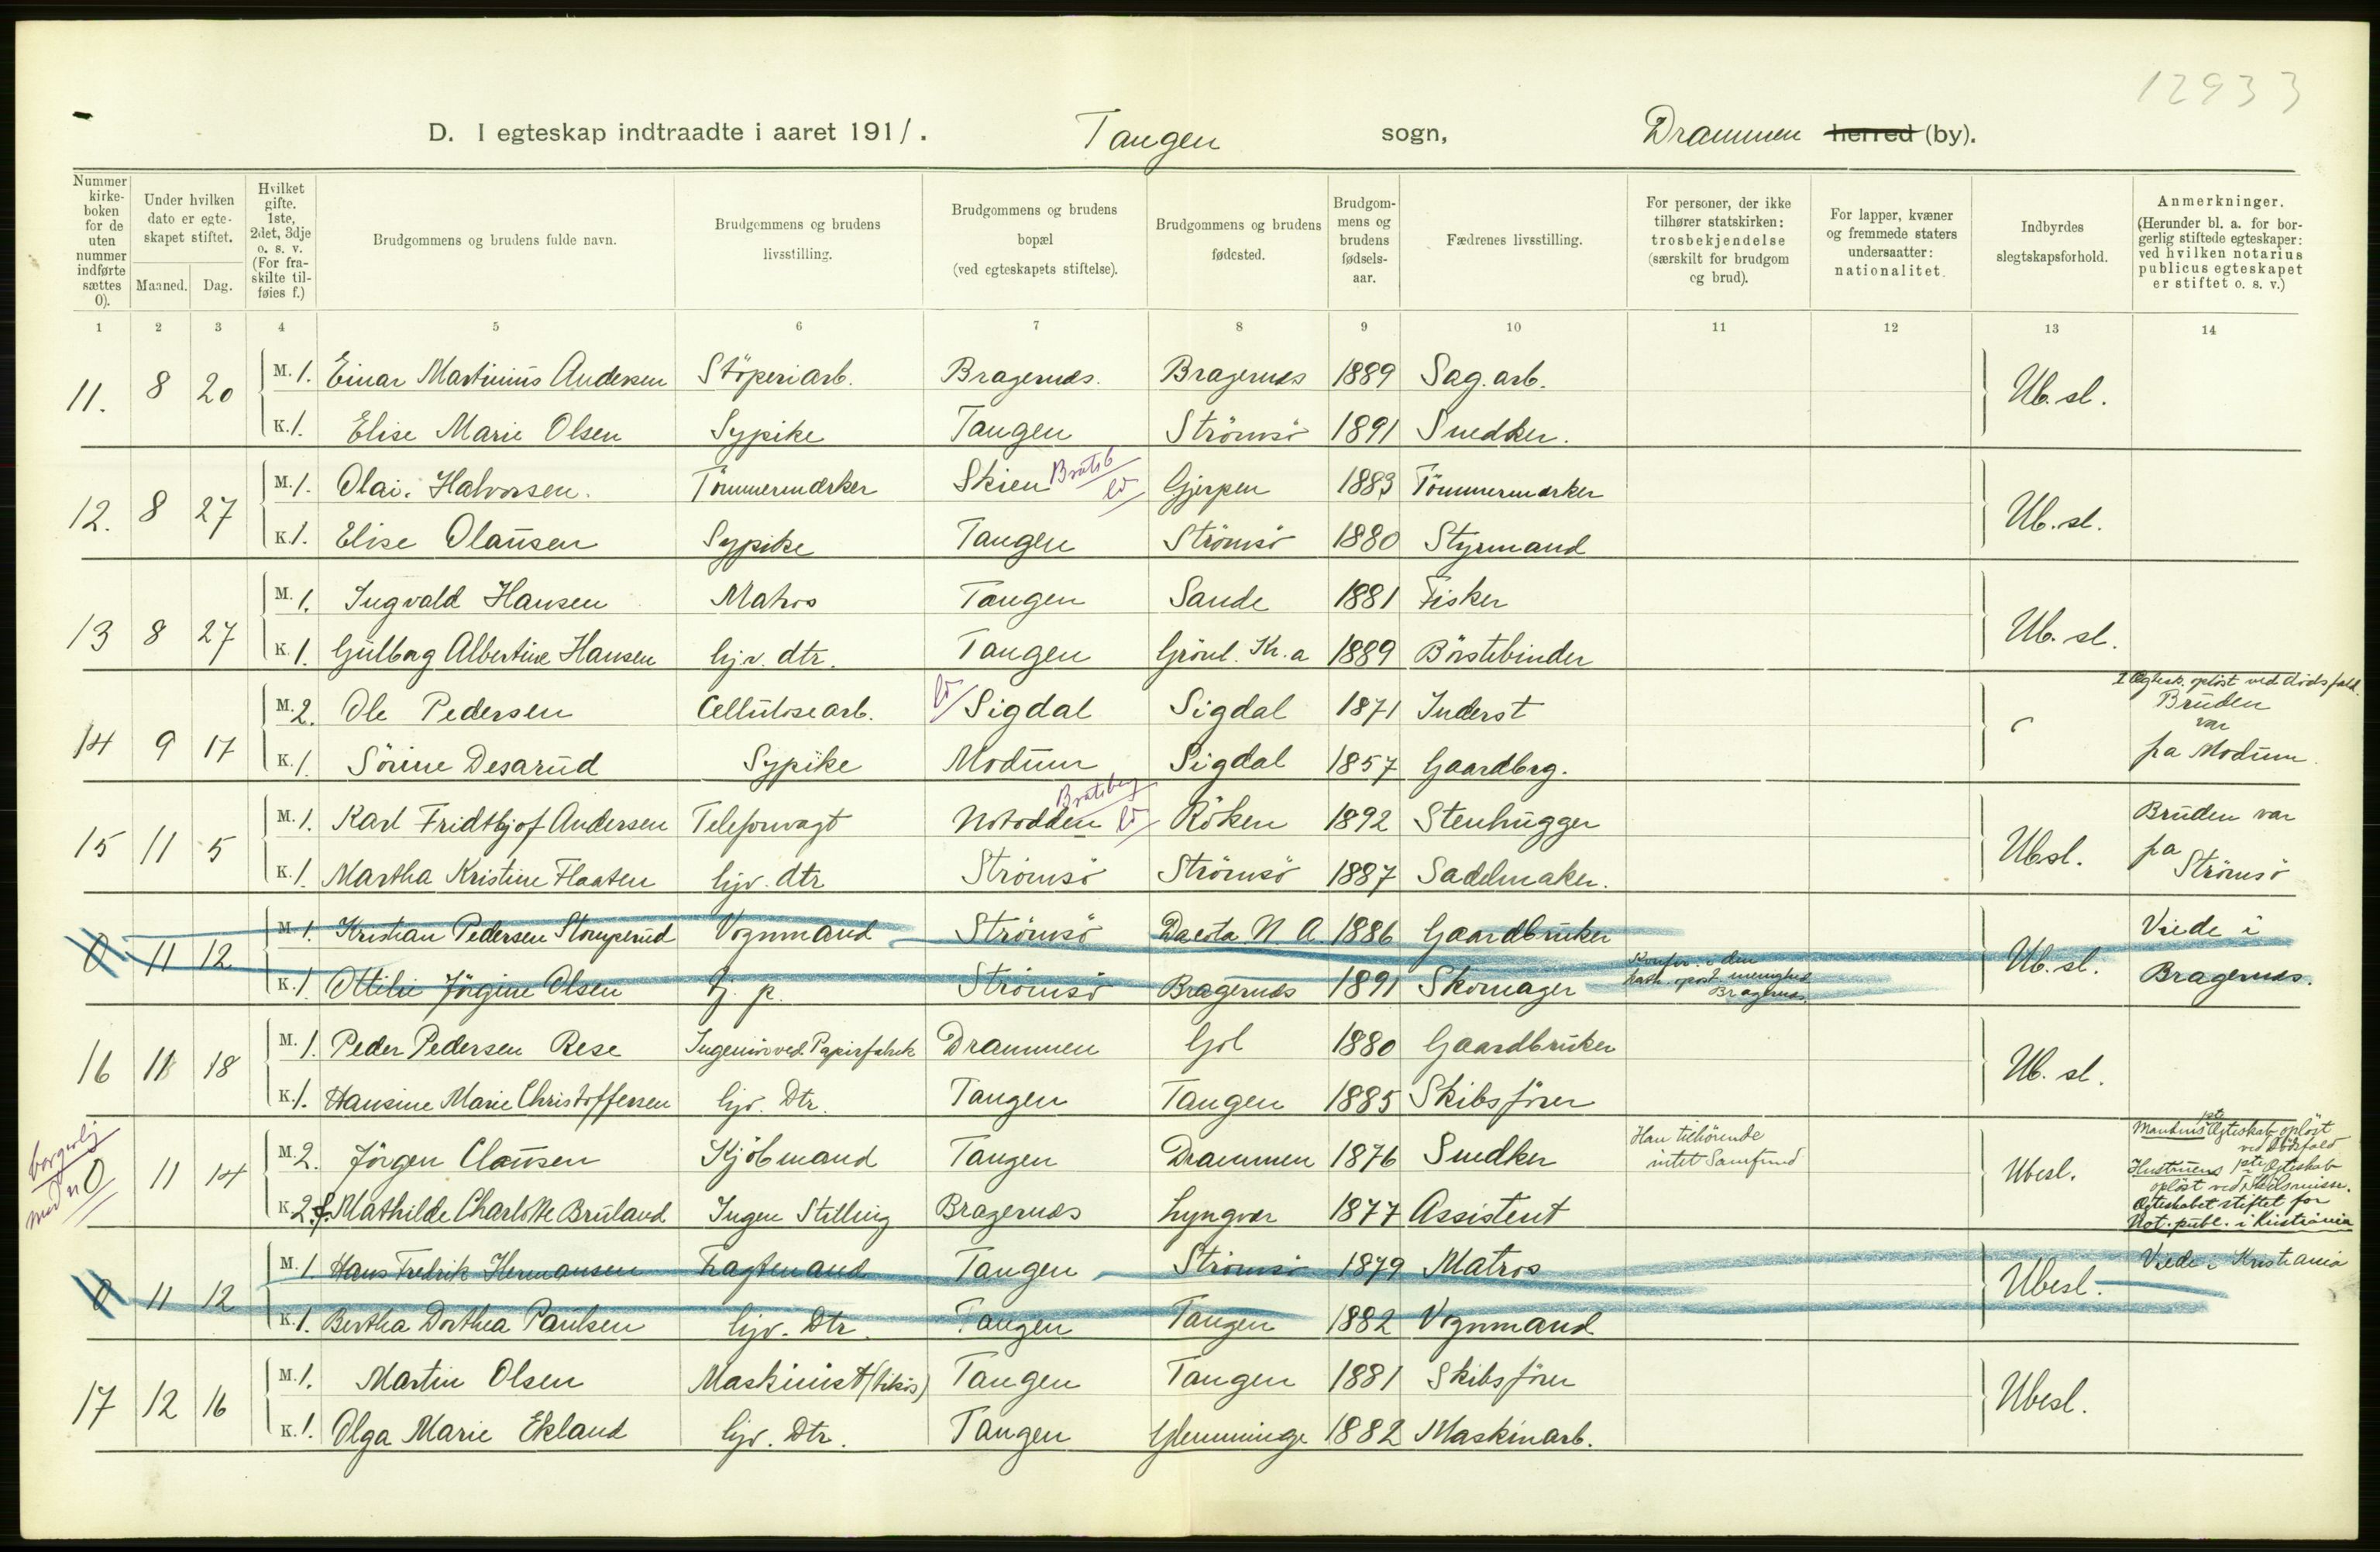 12933
D. I egteskap indtraadte i aaret 1911. Tangen sogn, Drammen herred (by).
Nummer kirke-boken for de uten nummer indførte sættes 0).
Under hvilken dato er egte-skapet stiftet.
Maaned. Dag.
Hvilket gifte. 1ste, 2det, 3dje o. s. v. (For fra-skilte til-føies f.)
Brudgommens og brudens fulde navn.
Brudgommens og brudens livsstilling.
Brudgommens og brudens bopæl (ved egteskapets stiftelse).
Brudgommens og brudens fødested.
Brudgom-mens og brudens fødsels-aar.
Fædrenes livsstilling.
For personer, der ikke tilhører statskirken: trosbekjendelse (særskilt for brudgom og brud).
For lapper, kvæner og fremmede staters undersaatter: nationalitet.
Indbyrdes slegtskapsforhold.
Anmerkninger. (Herunder bl. a. for bor-gerlig stiftede egteskaper: ved hvilken notarius publicus egteskapet er stiftet o. s. v.)
1 2 3 4 5 6 7 8 9 10 11 12 13 14
11. 8 20 M. 1. Einar Martinius Andersen Støperiarb. Bragernes. Bragernes 1889 Sag. arb. Ub. sl.
K. 1. Elise Marie Olsen Sypike Tangen Strömsö 1891 Snedker.
12. 8 27 M. 1. Olai Halvorsen. Tömmermærker Skien Bratsb Gjerpen 1883 Tömmermærker Ub. sl.
K. 1. Elise Olaüsen Sypike Tangen Strömsö 1880 Styrmand
13 8 27 M. 1. Ingvald Hansen Matros Tangen Sande 1881 Fisker Ub. sl.
K. 1. Gülborg Albertine Hansen hjv. dtr. Tangen Grönl. Kr.a 1889 Börstebinder
14 9 17 M. 2. Ole Pedersen Cellülosearb. Sigdal Sigdal 1871 Inderst 1 Ægtesk. opløst ved dødsfald. Brüden var
K. 1. Sörine Desarüd Sypike Modüm Sigdal 1857 Gaardbrg. pa Modüm.
15 11 5 M. 1. Karl Fridtbjof Andersen Telefonvagt Notodden Bratsberg Röken 1892 Stenhugger Ubsl. Brüden var
K. 1. Martha Kristine Flaaten hjv. dtr Strömsö Strömsö 1887 Sadelmaker. pa Strömsö
0 11 12 M. 1. Kristian Pedersen Stomperüd Vognmand Strömsö Dacota N. A. 1886 Gaardbrüker Ub. sl. Viede i
K. 1. Ottilie Jörgine Olsen hj. p. Strömsö Bragernes 1891 Skomager Konfir. i den kath. apost. menighed Bragernes. Bragernes.
16 11 18 M. 1. Peder Pedersen Rese Ingeniör ved Papirfabrik Drammen Gol 1880 Gaardbrüker Ub. sl.
K. 1. Hansine Marie Christoffersen hjv. Dtr. Tangen Tangen 1885 Skibsförer
borgerlig med n 0 11 14 M. 2. Jörgen Claüsen Kjöbmand Tangen Drammen 1876 Snedker Han tilhörende intet Samfund Ubesl. Mandens 1ste Ægteskab oplöst ved Dödsfald
K. 2. f. Mathilde Charlotte Brüland Ingen Stilling Bragernes Lyngør 1877 Assistent Hustruens 1ste Ægteskab oplöst ved Skilsmisse. Ægteskabet stiftet for Not. publ. i Kristiania
0 11 12 M. 1. Hans Fredrik Hermansen Fragtemand Tangen Strömsö 1879 Matros Ubesl. Viede i Kristiania
K. 1. Bertha Dorthea Paülsen hjv. Dtr. Tangen Tangen 1882 Vognmand
17 12 16 M. 1. Martin Olsen Maskinist (tilsös) Tangen Tangen 1881 Skibsförer Ubesl.
K. 1. Olga Marie Ekland hjv. Dtr. Tangen Glemminge 1882 Maskinarb.